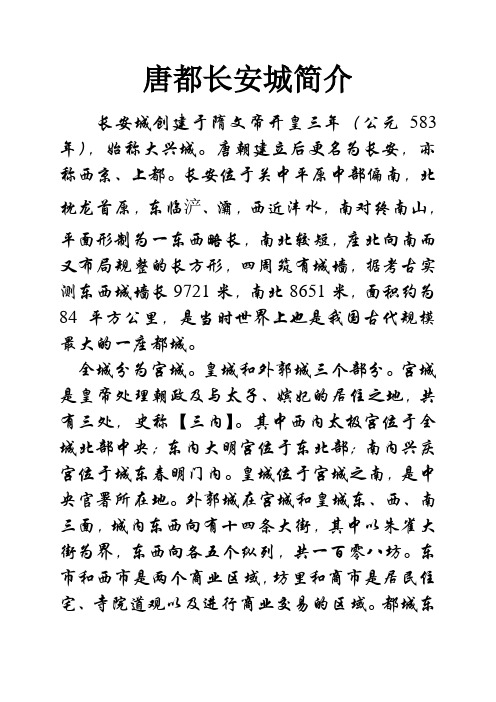 唐都长安城简介
长安城创建于隋文帝开皇三年（公元 583
年），始称大兴城。唐朝建立后更名为长安，亦
称西京、上都。长安位于关中平原中部偏南，北
枕龙首原，东临浐、灞，西近沣水，南对终南山，
平面形制为一东西略长，南北较短，座北向南而
又布局规整的长方形，四周筑有城墙，据考古实
测东西城墙长 9721 米，南北 8651 米，面积约为
84 平方公里，是当时世界上也是我国古代规模
最大的一座都城。
全城分为宫城。皇城和外郭城三个部分。宫城
是皇帝处理朝政及与太子、嫔妃的居住之地，共
有三处，史称【三内】。其中西内太极宫位于全
城北部中央；东内大明宫位于东北部；南内兴庆
宫位于城东春明门内。皇城位于宫城之南，是中
央官署所在地。外郭城在宫城和皇城东、西、南
三面，城内东西向有十四条大街，其中以朱雀大
街为界，东西向各五个纵列，共一百零八坊。东
市和西市是两个商业区域，坊里和商市是居民住
宅、寺院道观以及进行商业交易的区域。都城东